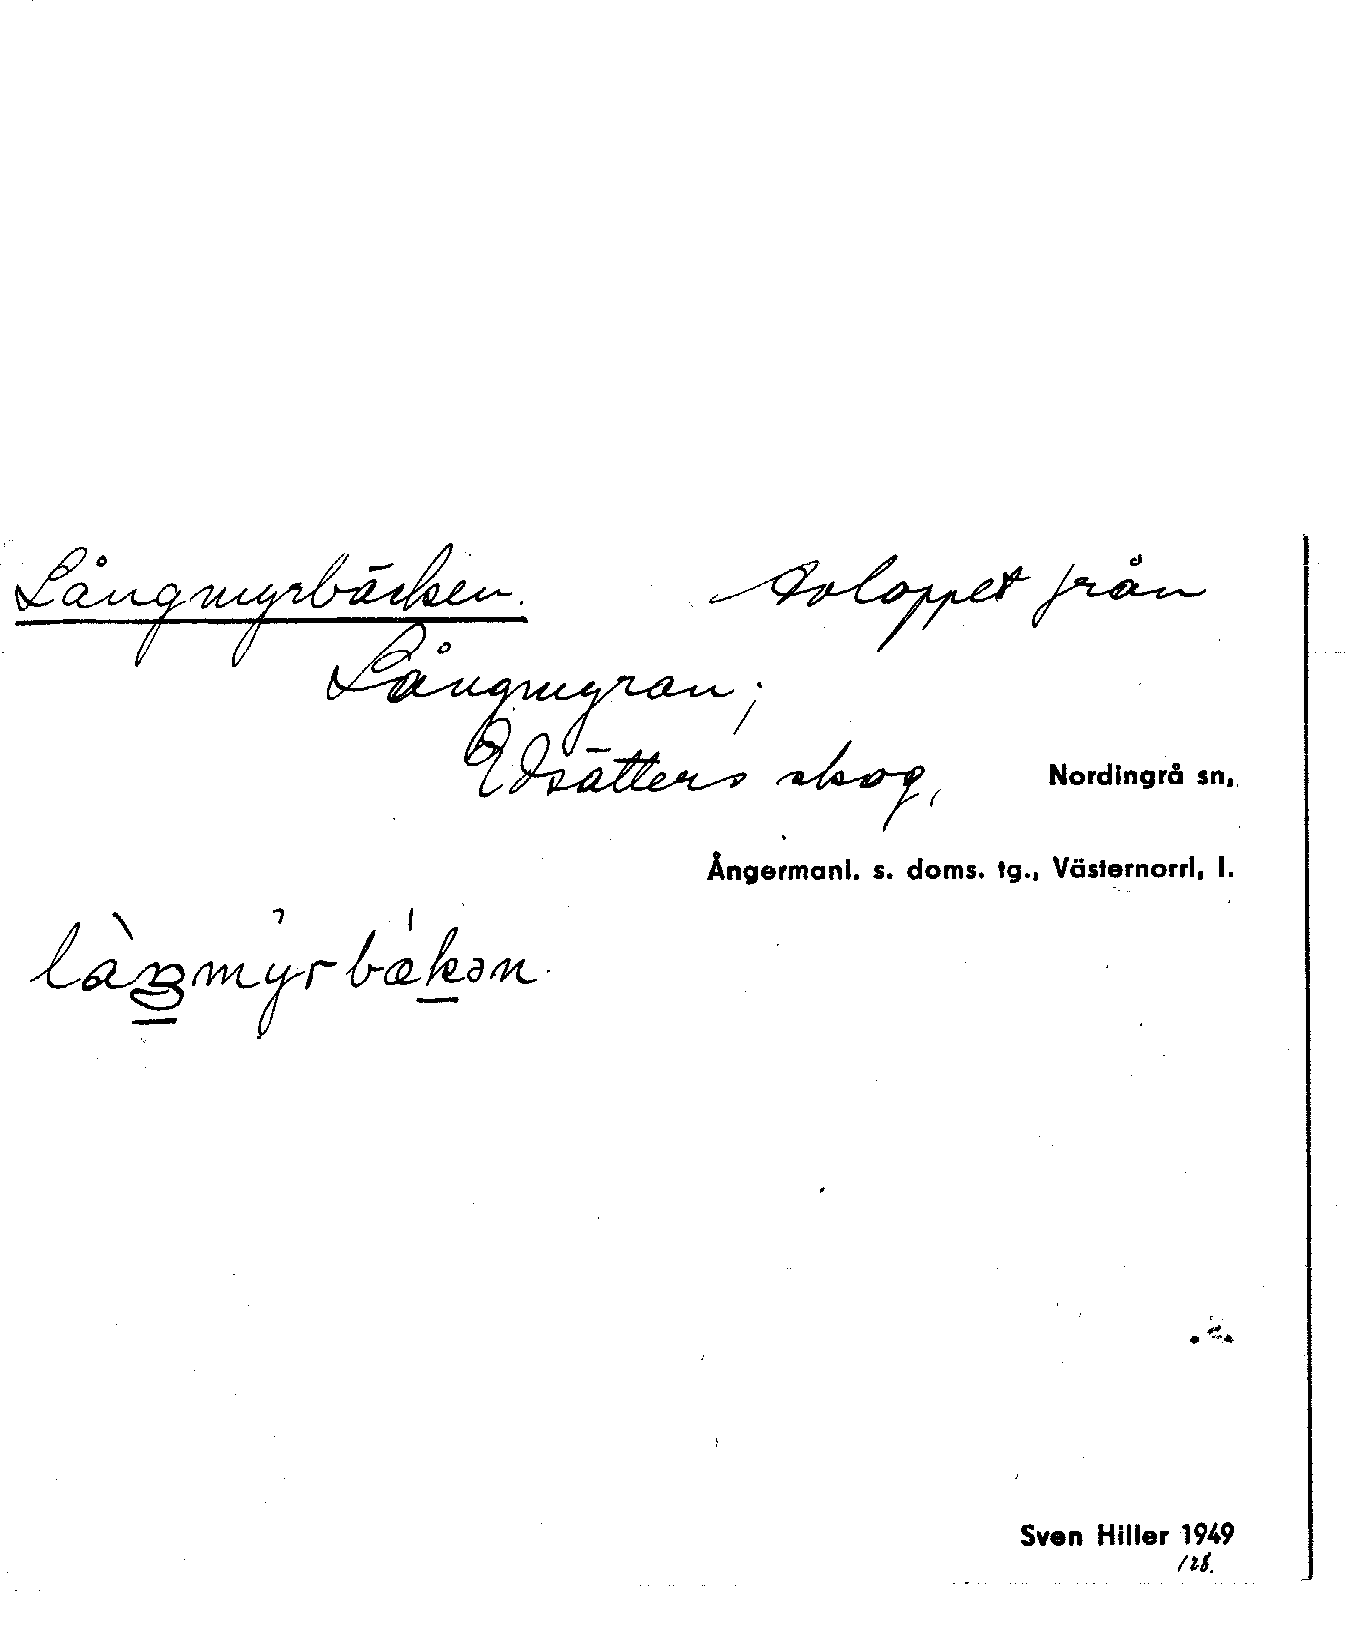 Långmyrbäcken. Avloppet från
Långmyran;
Edsätters skog, Nordingrå sn,
Ångermanl. s. doms. tg., Västernorrl. l.
Sven Hiller 1949
128.